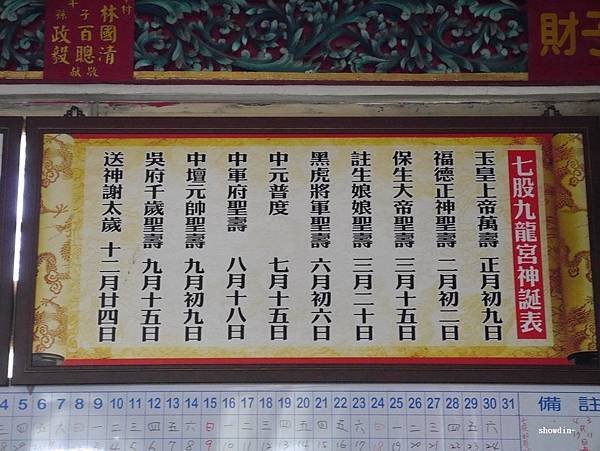 林國清
子百聰敬
孫政毅獻
財
七股九龍宮神誕表
玉皇上帝萬壽 正月初九日
福德正神聖壽 二月初二日
保生大帝聖壽 三月十五日
註生娘娘聖壽 三月二十日
黑虎將軍聖壽 六月初六日
中元普度 七月十五日
中軍府聖壽 八月十八日
中壇元帥聖壽 九月初九日
吳府千歲聖壽 九月十五日
送神謝太歲 十二月廿四日
4 5 6 7 8 9 10 11 12 13 14 15 16 17 18 19 20 21 22 23 24 25 26 27 28 29 30 31 備註
showdin~